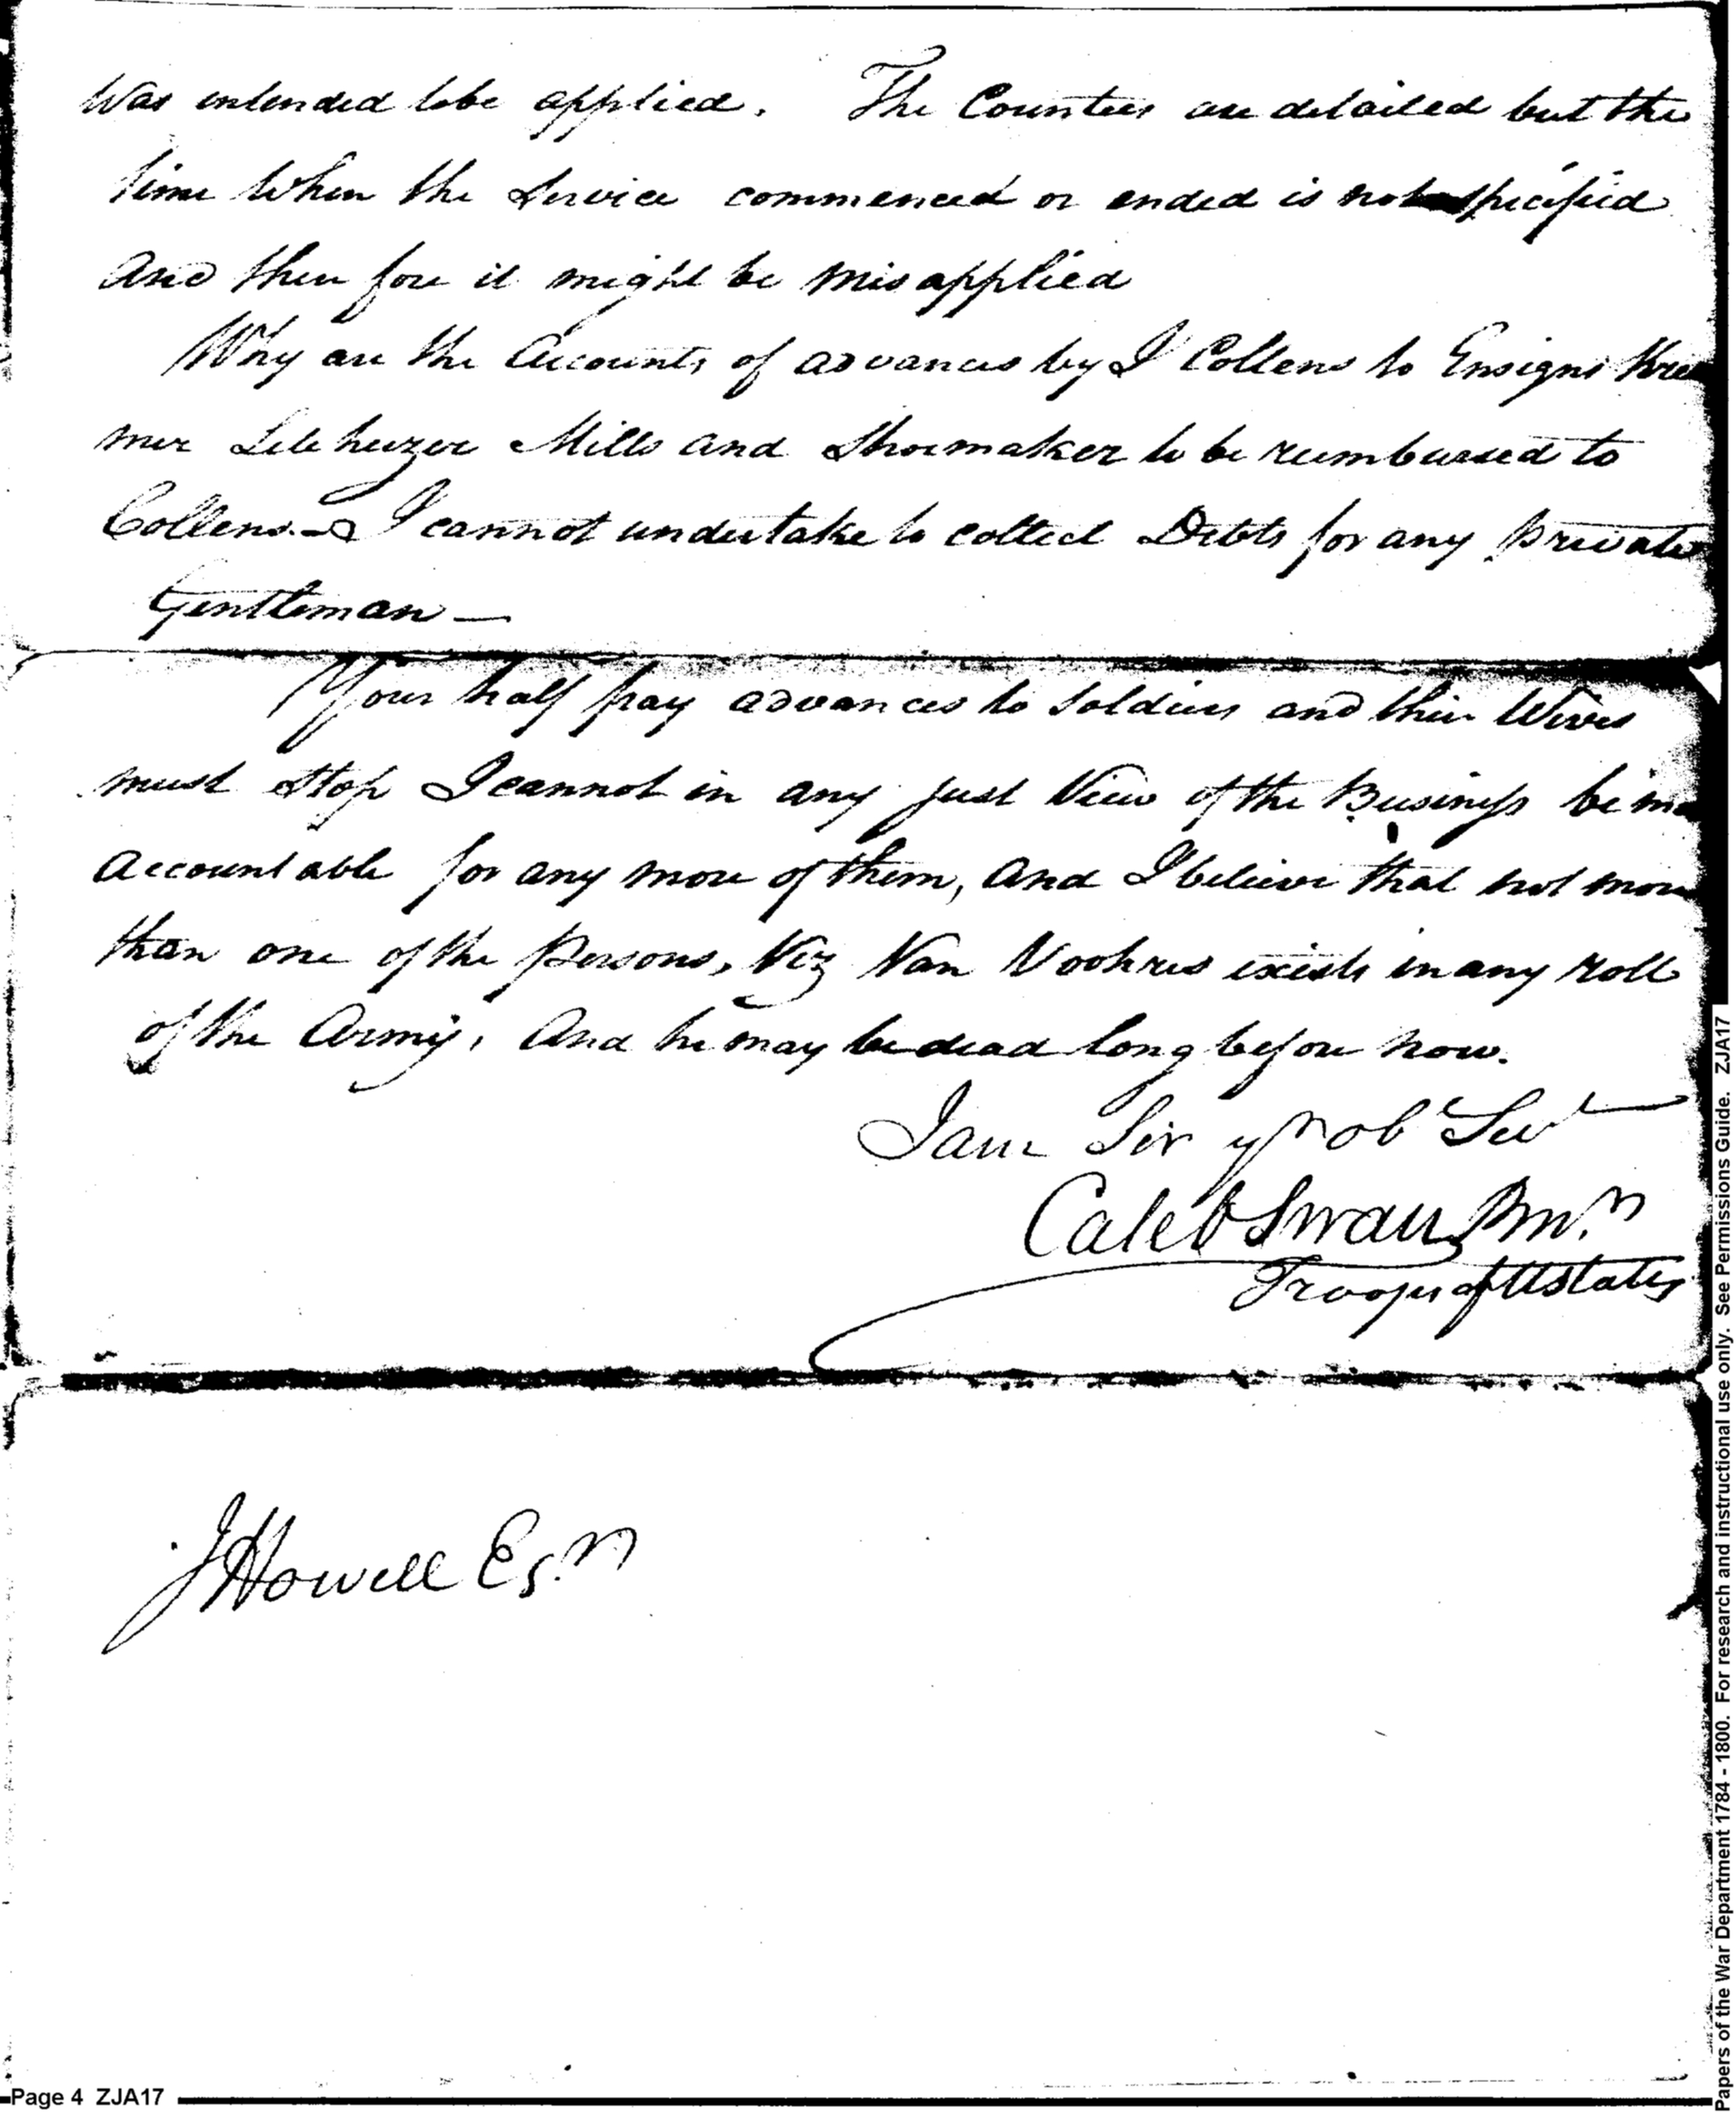 Was intended tobe applied. The Counties are detailed but the
time when the Service commenced or ended is not specified
And there fore it might be mis applied
Why are the Accounts of advances by I Collens to Ensigns Kre
mer Lile heizer Mills and Shoemaker to be reembursed to
Collens.— I cannot undertake to collect Debts for any private
Gentleman —
Your half pay advances to Soldiers and their Wives
must Stop I cannot in any just View of the Business be
accountable for any more of them, and I believe that not more
than one of the persons, Viz Van Voohres exists in any roll
of the Army, And he may be dead long before now.
I am Sir yr ob Sert
Caleb Swan PMr
Troops of UStates
J Howell Esr
Page 4 ZJA17
Papers of the War Department 1784 - 1800. For research and instructional use only. See Permissions Guide. ZJA17